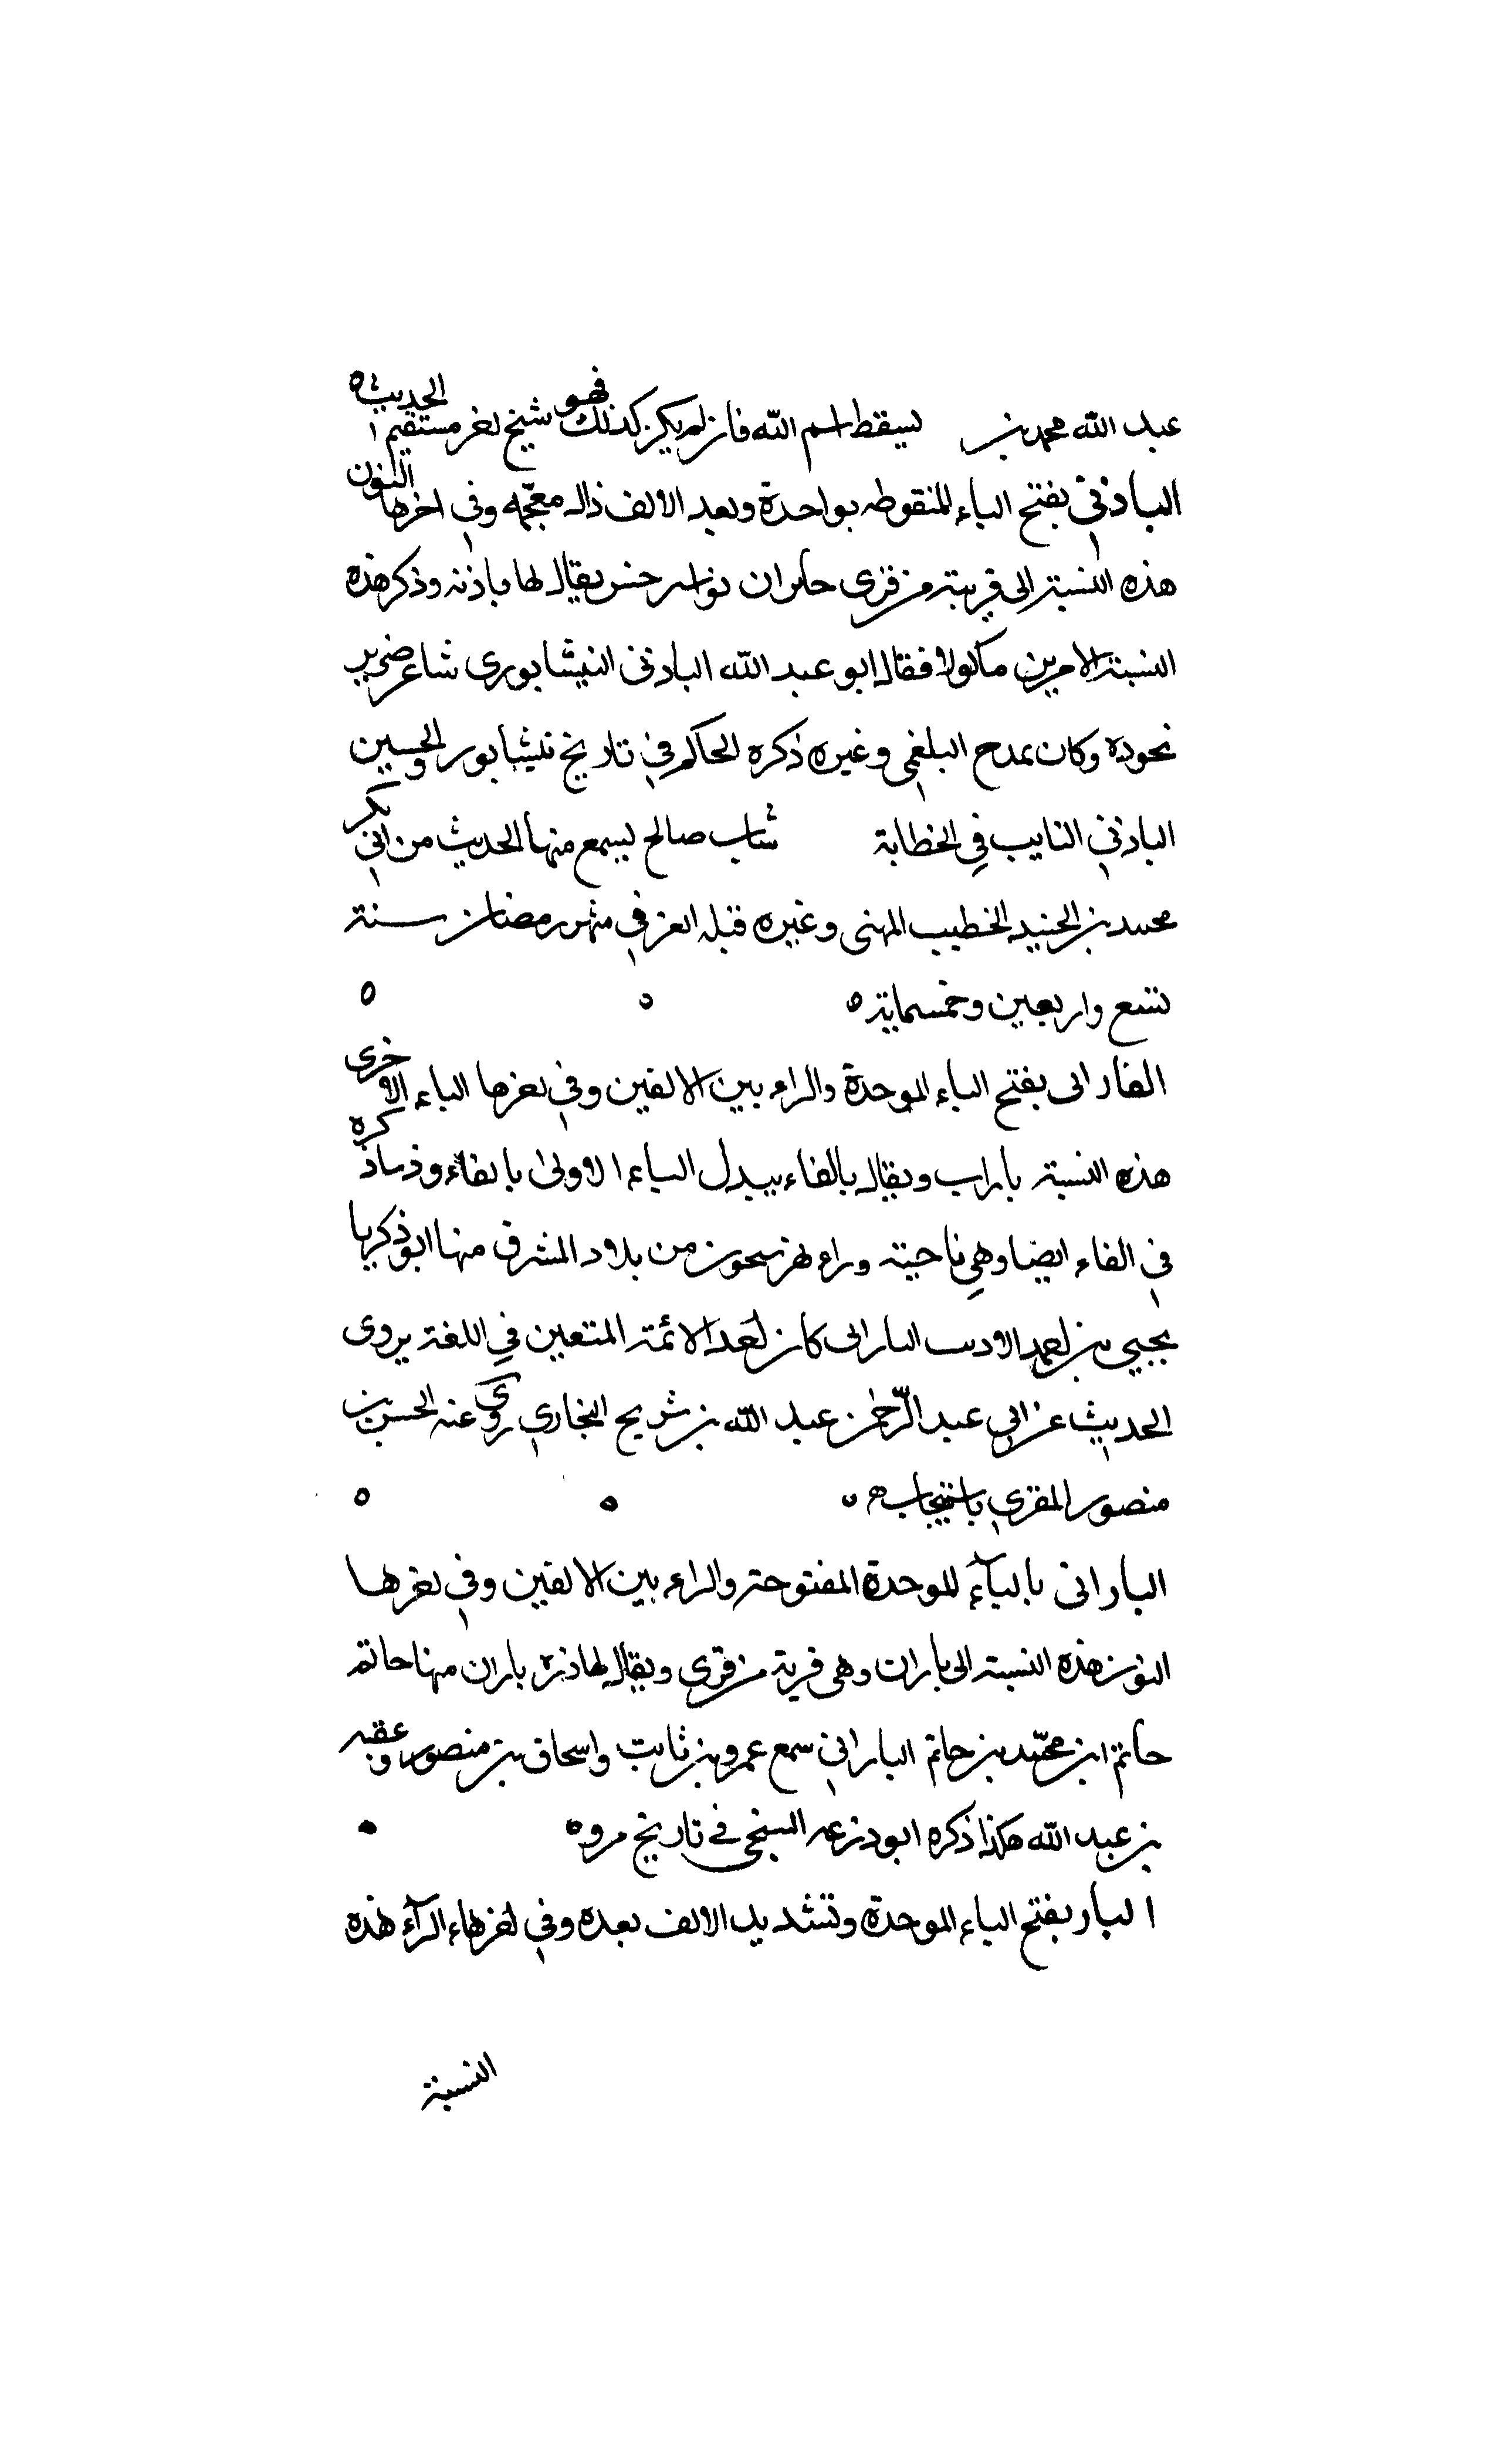 عبد الله محمد بن يسقط اسم الله فان لم يكن كذلك فهو شيخ اخر مستقيم الحديث ه
الباذني بفتح الباء المنقوطه بواحدة وبعد الالف ذال معجمه وفي اخرها النون
هذه النسبة الى قرية من قرى حابران نواسرخس يقال لها باذنه وذكر هذه
النسبة الامير بن ماكولا فقال ابو عبد الله الباذني النيشابورى شاعر ضرير
نحوده وكان يمدح البلغمي وغيره ذكره الحاكم في تاريخ نيشابور والحسين
الباذني النايب في الخطابة شاب صالح يسمع منها الحديث من ابي بكر
محمد بن الجنيد الخطيب المهنى وغيره قتله الغز في شهر رمضان سنة
تسع واربعين وخمسماية ه
الفارابى بفتح الباء الموحدة والراء بين الالفين وفي اخرها الباء الاخرى
هذه النسبة باراب ويقال بالفاء يبدل الباء الاولى بالفاء وذكره
في الفاء ايضا وهي ناحية وراء نهر سحون من بلاد المشرق منها ابو زكريا
يحيى بن احمد الاديب البارابى كان احد الائمة المتعين في اللغة يروى
الحديث عن ابي عبد الرحمن عبد الله بن شريح البخاري روى عنه الحسن بن
منصور المقري باسبيجاب ه
الباراني بالباء الموحدة المفتوحة والراء بين الالفين وفي اخرها
النون هذه النسبة الى باران وهى قرية من قرى ويقال لها دزه باران منها حاتم
حاتم ابن محمد بن حاتم الباراني سمع عمرو بن ثابت واسحاق بن منصور وعقبه
بن عبد الله هكذا ذكره ابو زرعه السنجى في تاريخ مرو ه
البار بفتح الباء الموحدة وتشديد الالف بعده وفي اخرها الراء هذه
النسبة